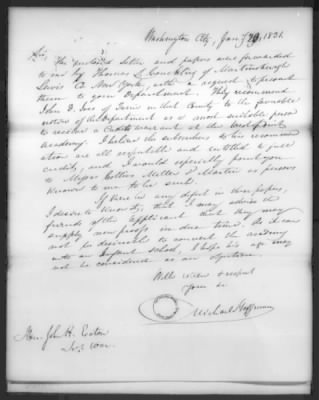 Washington City, Jany 29, 1831.
Sir
The enclosed letter and papers were forwarded
to me by Thomas L. Conckling of Martinsburgh
Lewis Co. New York with a request to present
them to your Department. They recommend
John D. of Turin in that County to the favorable
notice of the Department as a most suitable person
to receive a Cadet warrant at the West point
Academy. I believe the subscribers to the recommend
ation are all respectable and entitled to full
credit, and I would especially point you
to Messrs Collins Miller & Martin as persons
known to me to be such.
If there is any defect in these papers,
I desire to know it, that I may advise the
friends of the applicant that they may
supply new proofs in due time. As it can
not be desirable to convert the academy
into an Infant school, I hope his age may
not be considered as an objection.
With esteem & respect
Your
Michael Hoffman
Hon. John H. Eaton
War